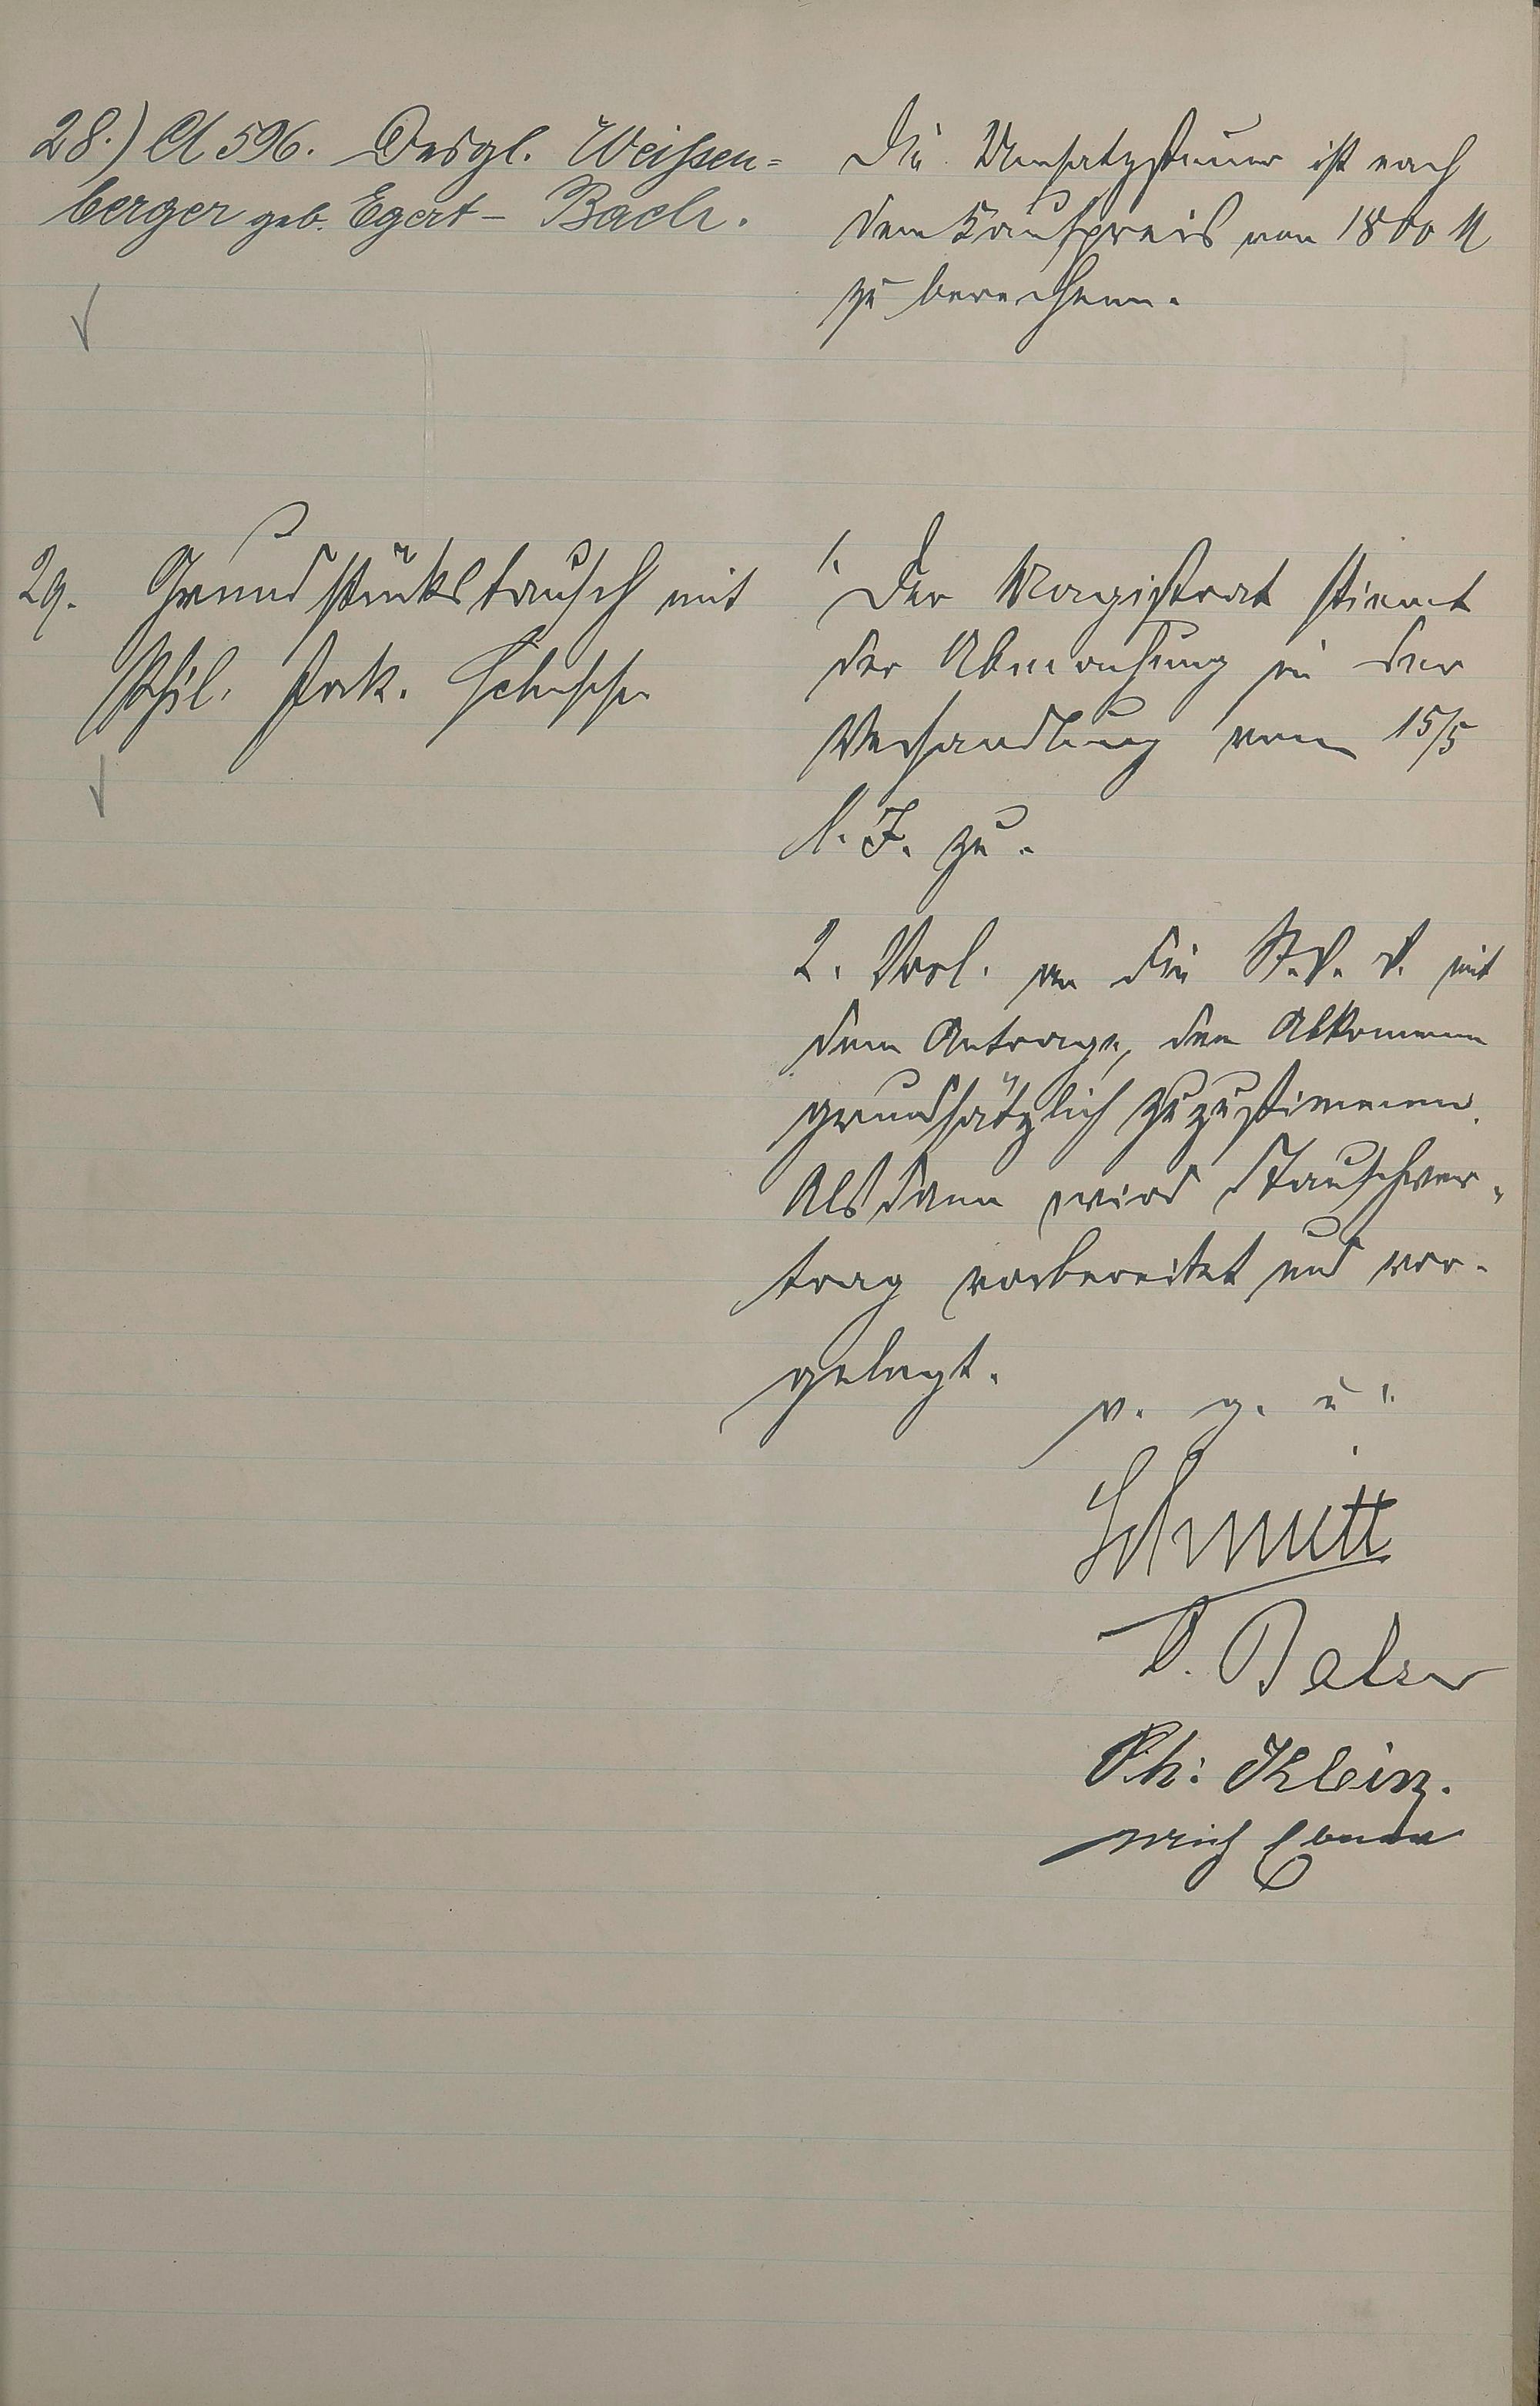 28.) A 596. Desgl. Weissen=
berger geb. Egert - Bach.
Die Umsatzsteuer ist nach
dem Kaufpreis von 1800 M
zu berechnen.
29. Grundstückstausch mit
Phil. Jak.
1. Der Magistrat stimmt
der Abmachung in der
Verhandlung vom 15/5
l. J. zu.
2. Vorl. an die St. V. V. mit
dem Antrage, dem Abkommen
grundsätzlich zuzustimmen.
Alsdann wird Tauschver-
trag vorbereitet und vor-
gelegt.
v. g. u.
Schmitt
Balzer
Ph: Klein.